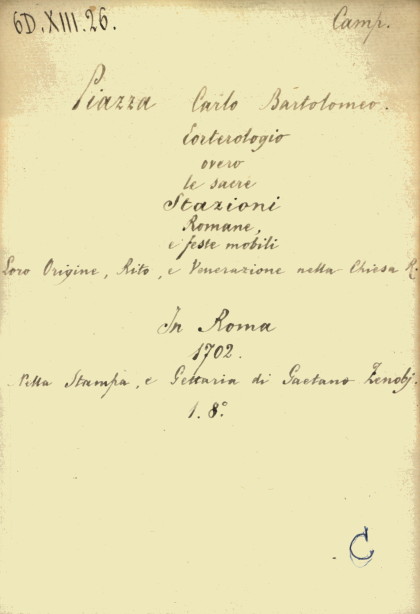 6D.XIII.26.
Camp.
Piazza Carlo Bartolomeo.
Eorterologio
overo
le sacre
Stazioni
Romane,
e feste mobili
Loro Origine, Rito, e Venerazione nella Chiesa R.
In Roma
1702.
Nella Stampa, e Gettaria di Gaetano Zenobj.
1. 8°
C